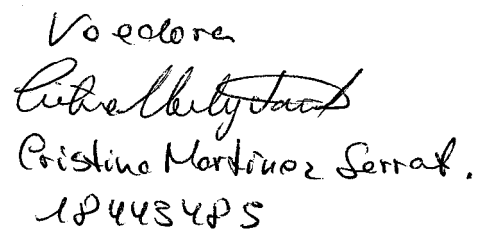 Voedora
Cristina Martinez Serrat.
18443485